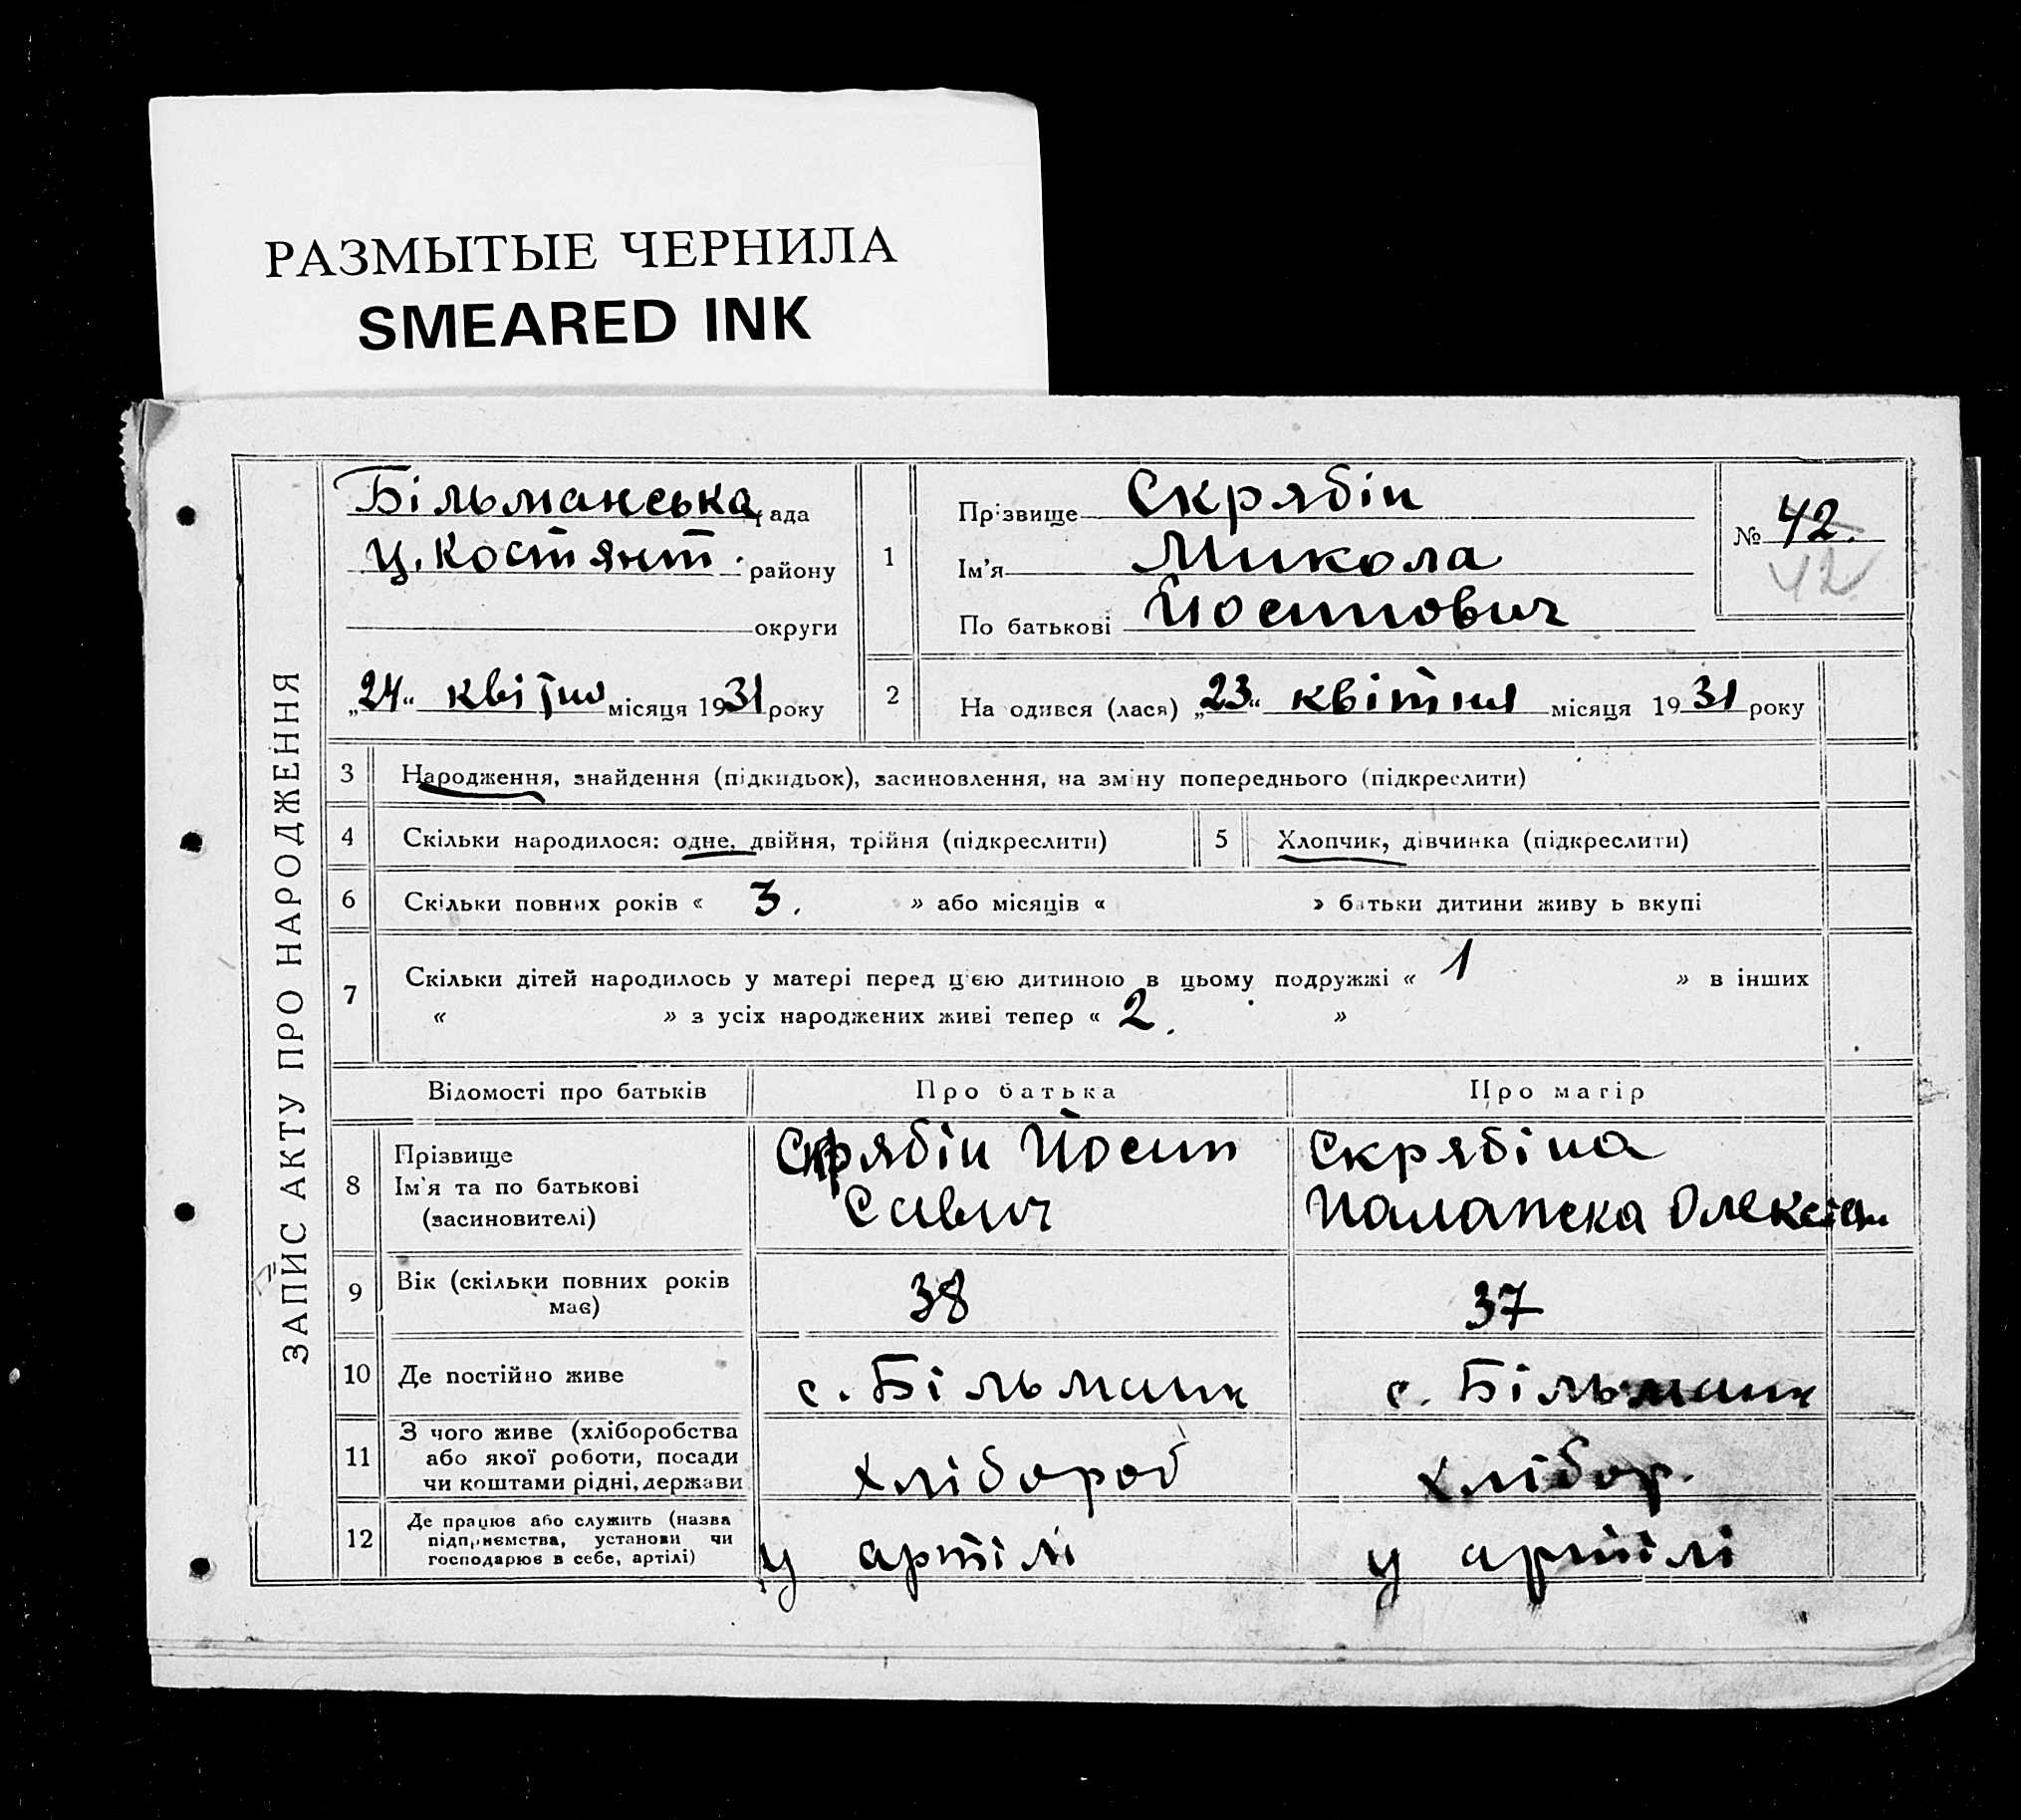 РАЗМЫТЫЕ ЧЕРНИЛА
SMEARED INK
ЗАПИС АКТУ ПРО НАРОДЖЕННЯ
Більманська рада
Ц. Костянт. району
округи
„24“ квітня місяця 1931 року
1
Прізвище Скрябін
Ім’я Микола
По батькові Йосипович
№ 42.
42
2
Народився (лася) „23“ квітня місяця 1931 року
3 Народження, знайдення (підкидьок), засиновлення, на зміну попереднього (підкреслити)
4 Скільки народилося: одне, двійня, трійня (підкреслити)
5 Хлопчик, дівчинка (підкреслити)
6 Скільки повних років « 3. » або місяців « » батьки дитини живуть вкупі
7 Скільки дітей народилось у матері перед цією дитиною в цьому подружжі « 1 » в інших
« » з усіх народжених живі тепер « 2. »
Відомості про батьків Про батька Про матір
8 Прізвище
Ім’я та по батькові
(засиновителі)
Скрябін Йосип
Савич
Скрябіна
Олексієв
9 Вік (скільки повних років
має)
38 37
10 Де постійно живе с. Більманк с. Більманк
11 З чого живе (хліборобства
або якої роботи, посади
чи коштами рідні, держави
хлібороб хлібор.
12 Де працює або служить (назва
підприємства, установи чи
господарює в себе, артілі)
у артілі у артілі